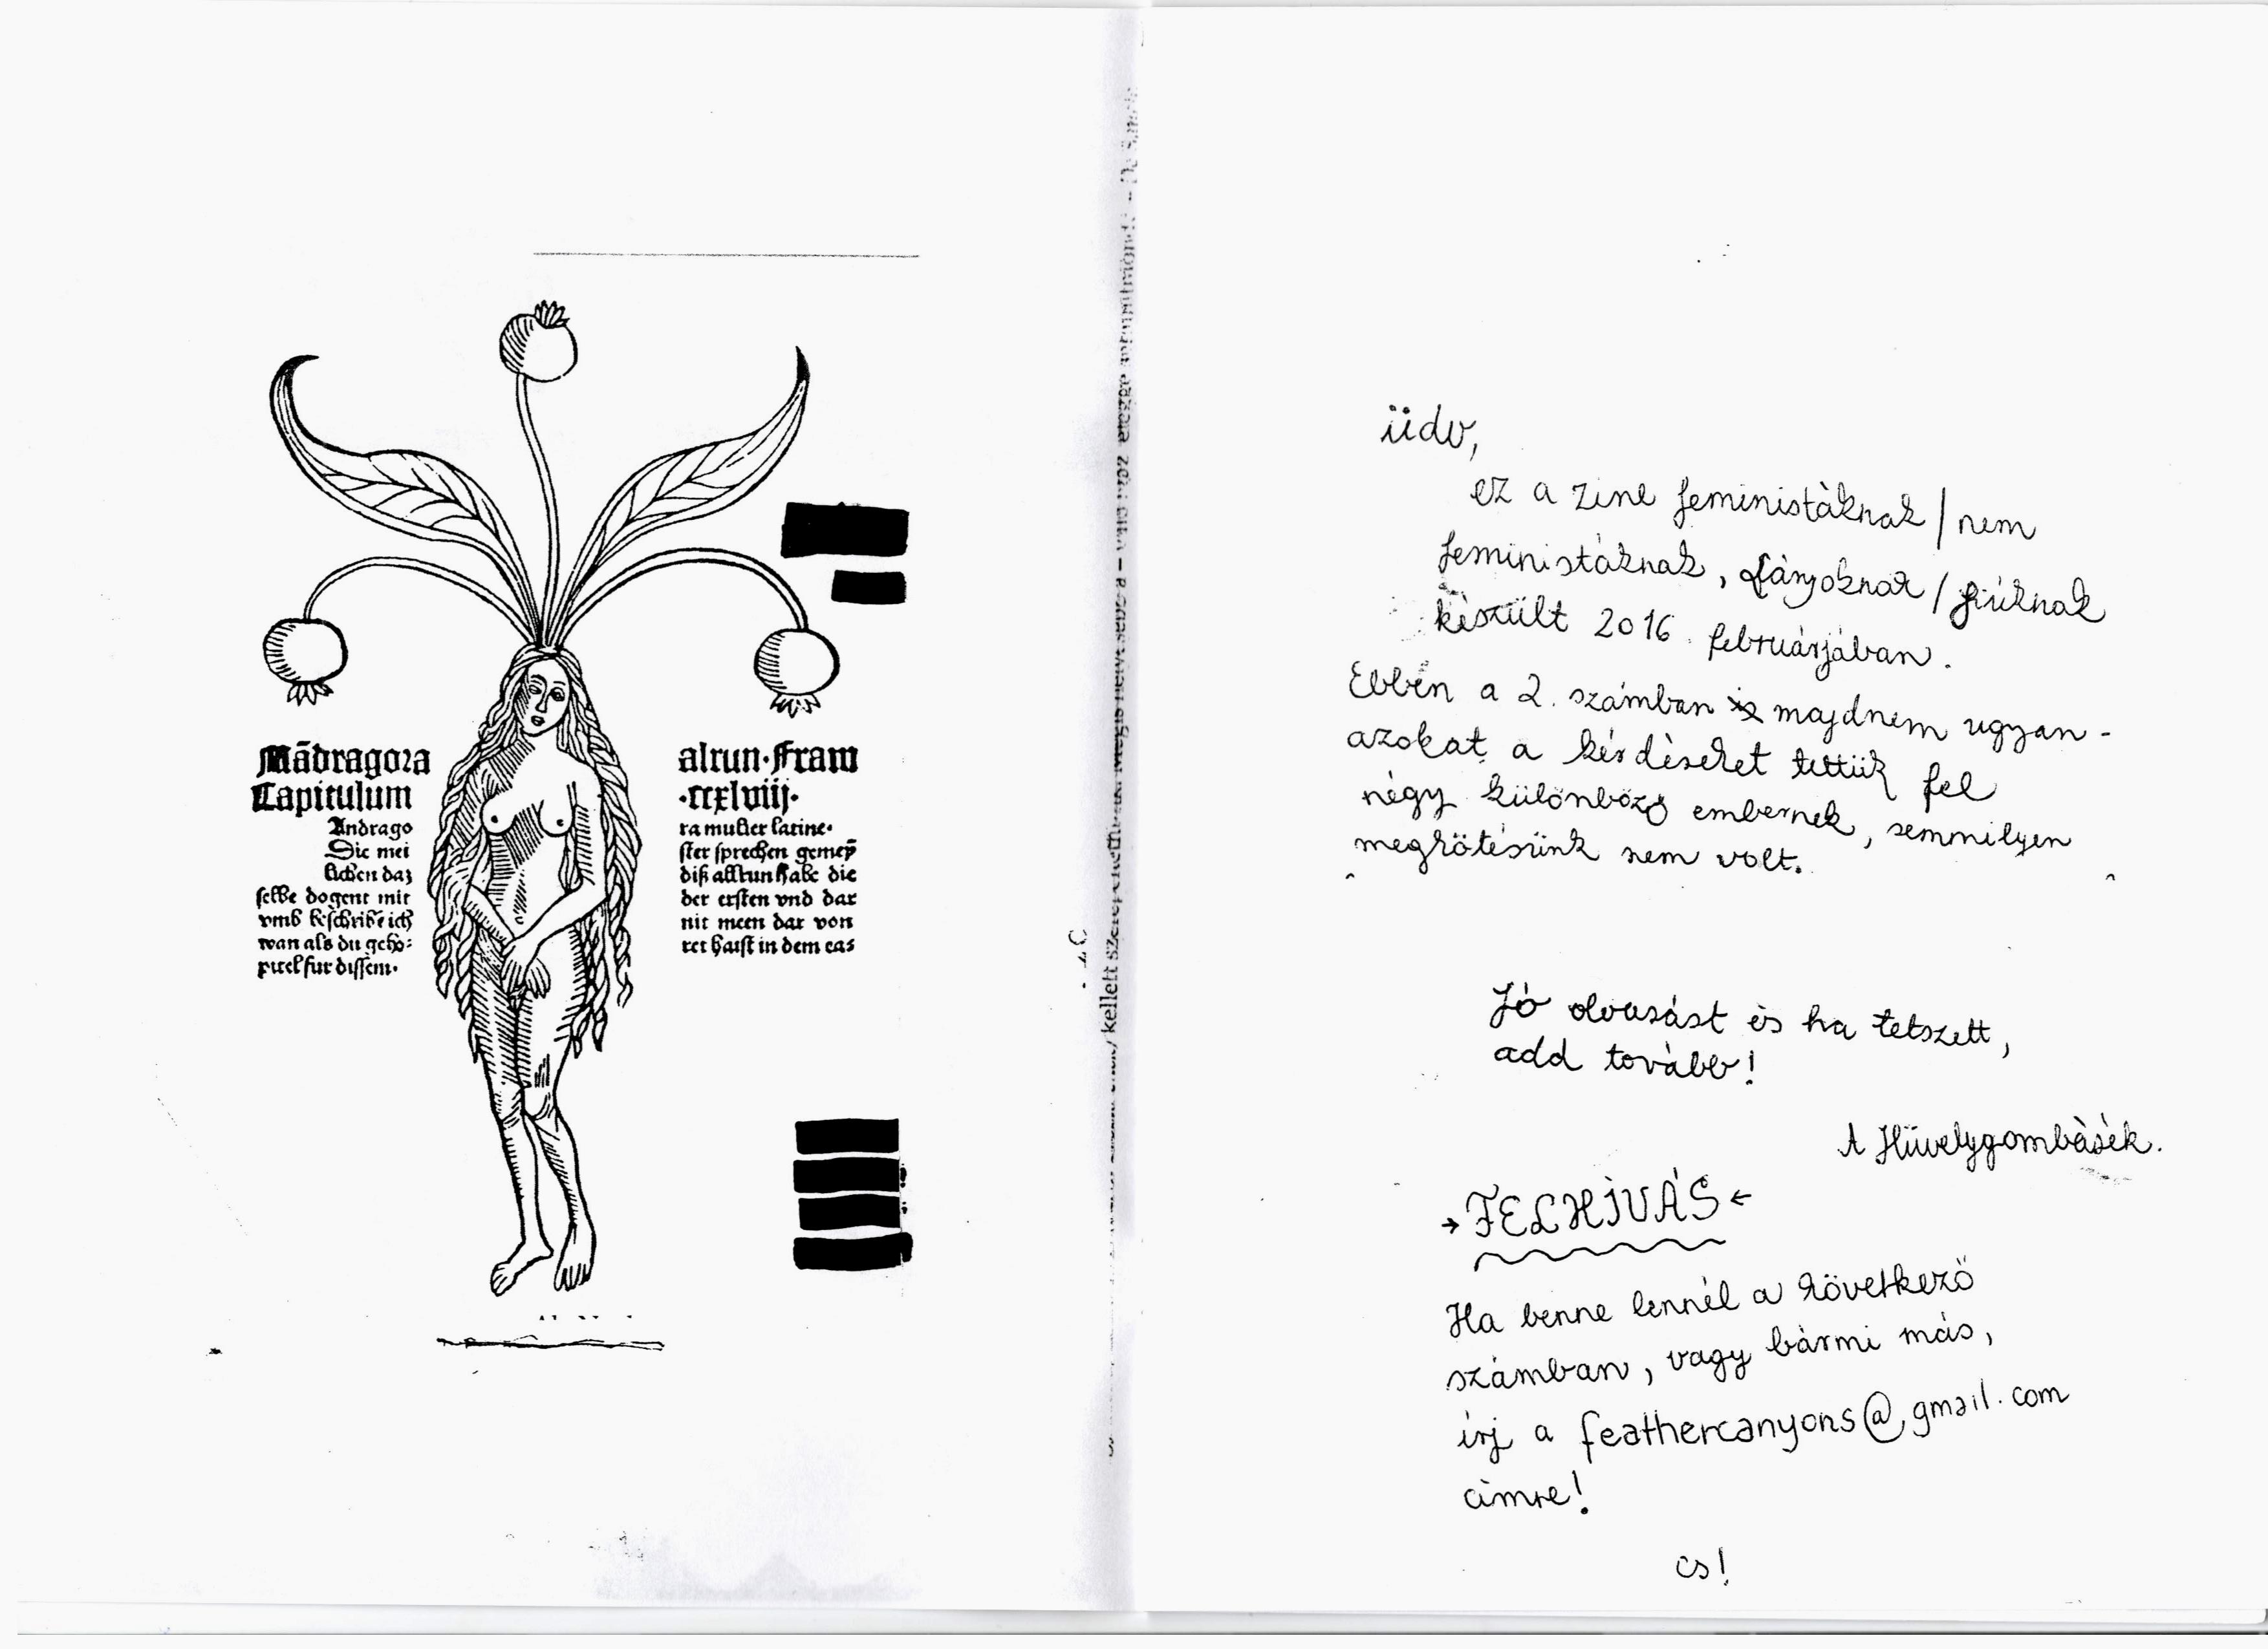 Mãdragora
Capitulum
Andrago
Die mei
lichen daz
selbe dogent mit
vmb beschribẽ ich
wan als du geho:
pitel fur dissem.
alrun. Fraw
.ccxlviij.
ra mulier latine.
ster sprechen gemeȳ
diß allrun habe die
der ersten vnd dar
nit meen dar von
ret haist in dem cas
kellett
üdv,
ez a zine feministáknak / nem
feministáknak, lányoknak / fiúknak
készült 2016 februárjában.
Ebben a 2. számban is majdnem ugyan-
azokat a kérdéseket tettük fel
négy különböző embernek, semmilyen
megkötésünk nem volt.
Jó olvasást és ha tetszett,
add tovább!
A Hüvelygombásék.
→ FELHÍVÁS ←
Ha benne lennél a következő
számban, vagy bármi más,
írj a feathercanyons@gmail.com
címre!
cs!